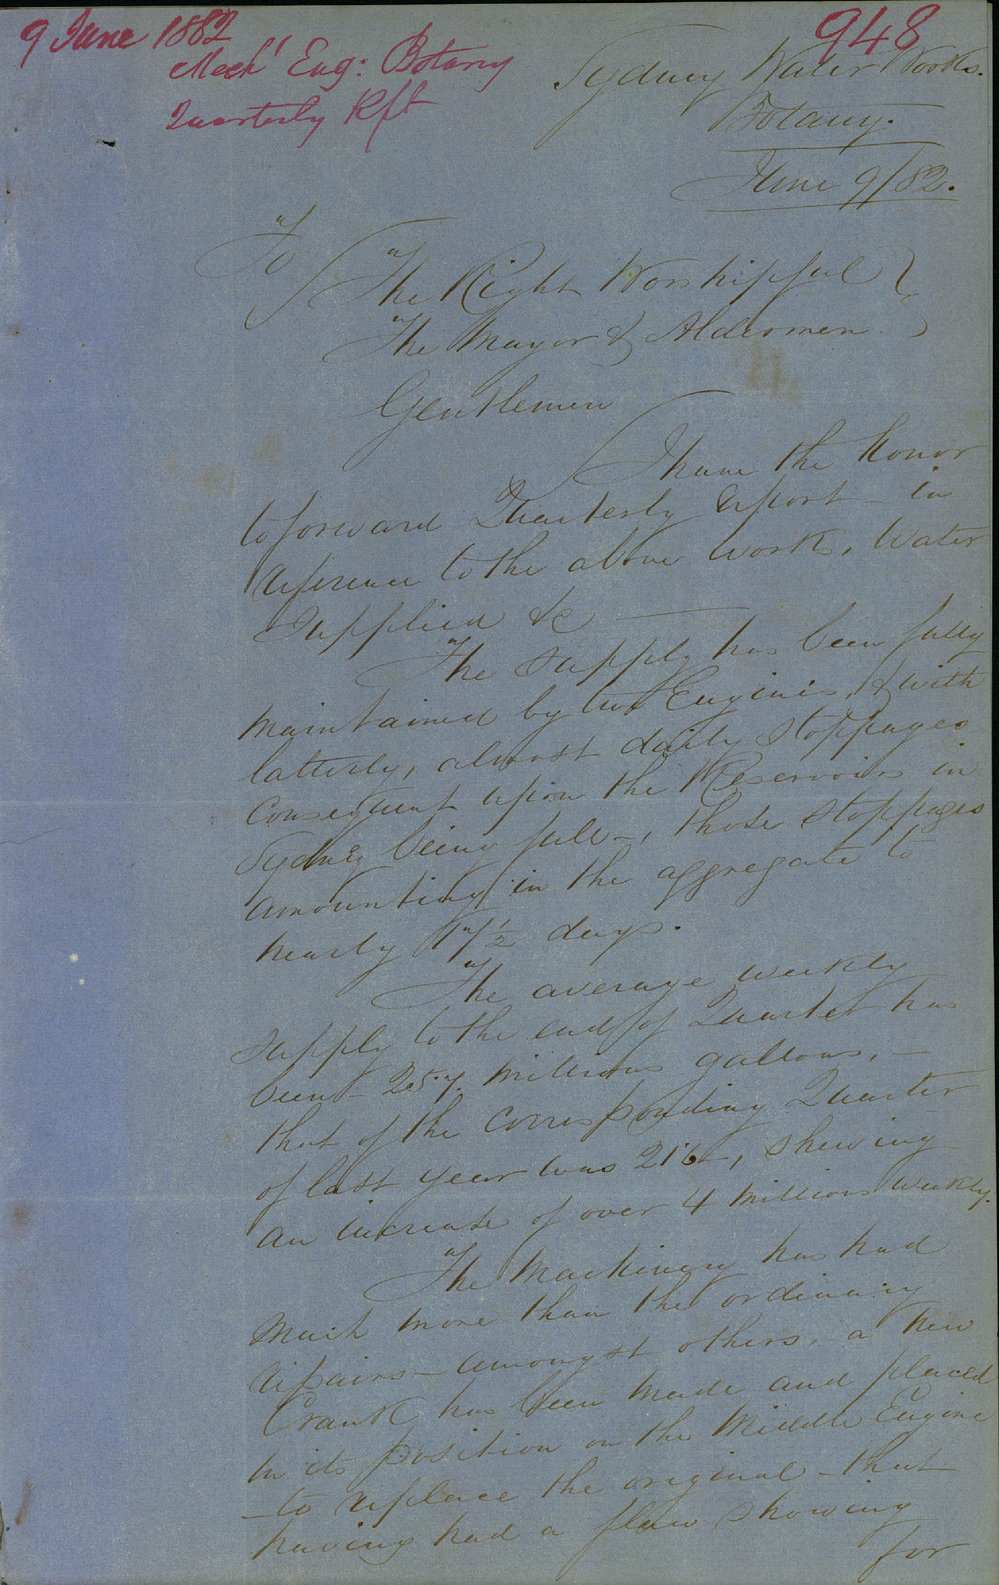 9 June 1882
948
Mech' Eng: Botany
Quarterly Rpt
Sydney Water Works.
Botany.
June 9/82.
To
The Right Worshipful
The Mayor & Aldermen.
Gentlemen
I have the honor
to forward Quarterly Report in
reference to the above works, Water
Supplied &c —
The supply has been fully
maintained by two Engines, & with
latterly, almost daily stoppages
consequent upon the Reservoirs in
Sydney being full —, those stoppages
amounting in the aggregate to
nearly 17½ days.
The average weekly
supply to the end of Quarter has
been 25.7. millions gallons, —
that of the corresponding Quarter
of last year was 21.6 —, shewing
an increase of over 4 millions weekly.
The Machinery has had
much more than the ordinary
repairs — amongst others, — a new
Crank has been made and placed
in its position on the Middle Engine
— to replace the original — that
having had a flaw showing
for